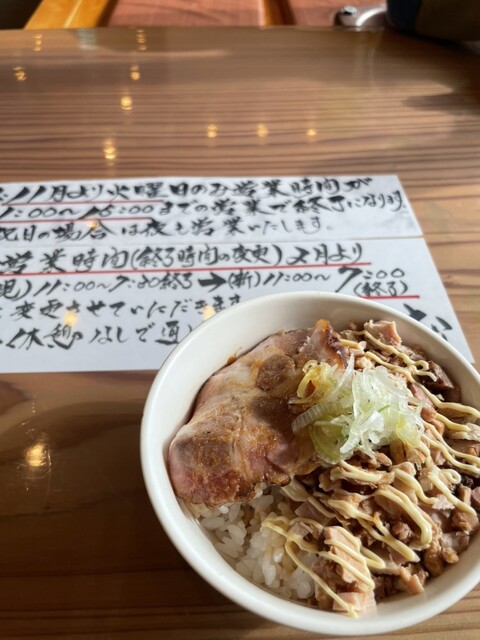 11月より火曜日のみ営業時間が
11:00〜16:00までの営業で終了になります。
祝日の場合は夜も営業いたします。
営業時間(終了時間の変更)2月より
11:00〜7:30終了→(新)11:00〜7:00
(終了)
変更させていただきます
休憩なしで通